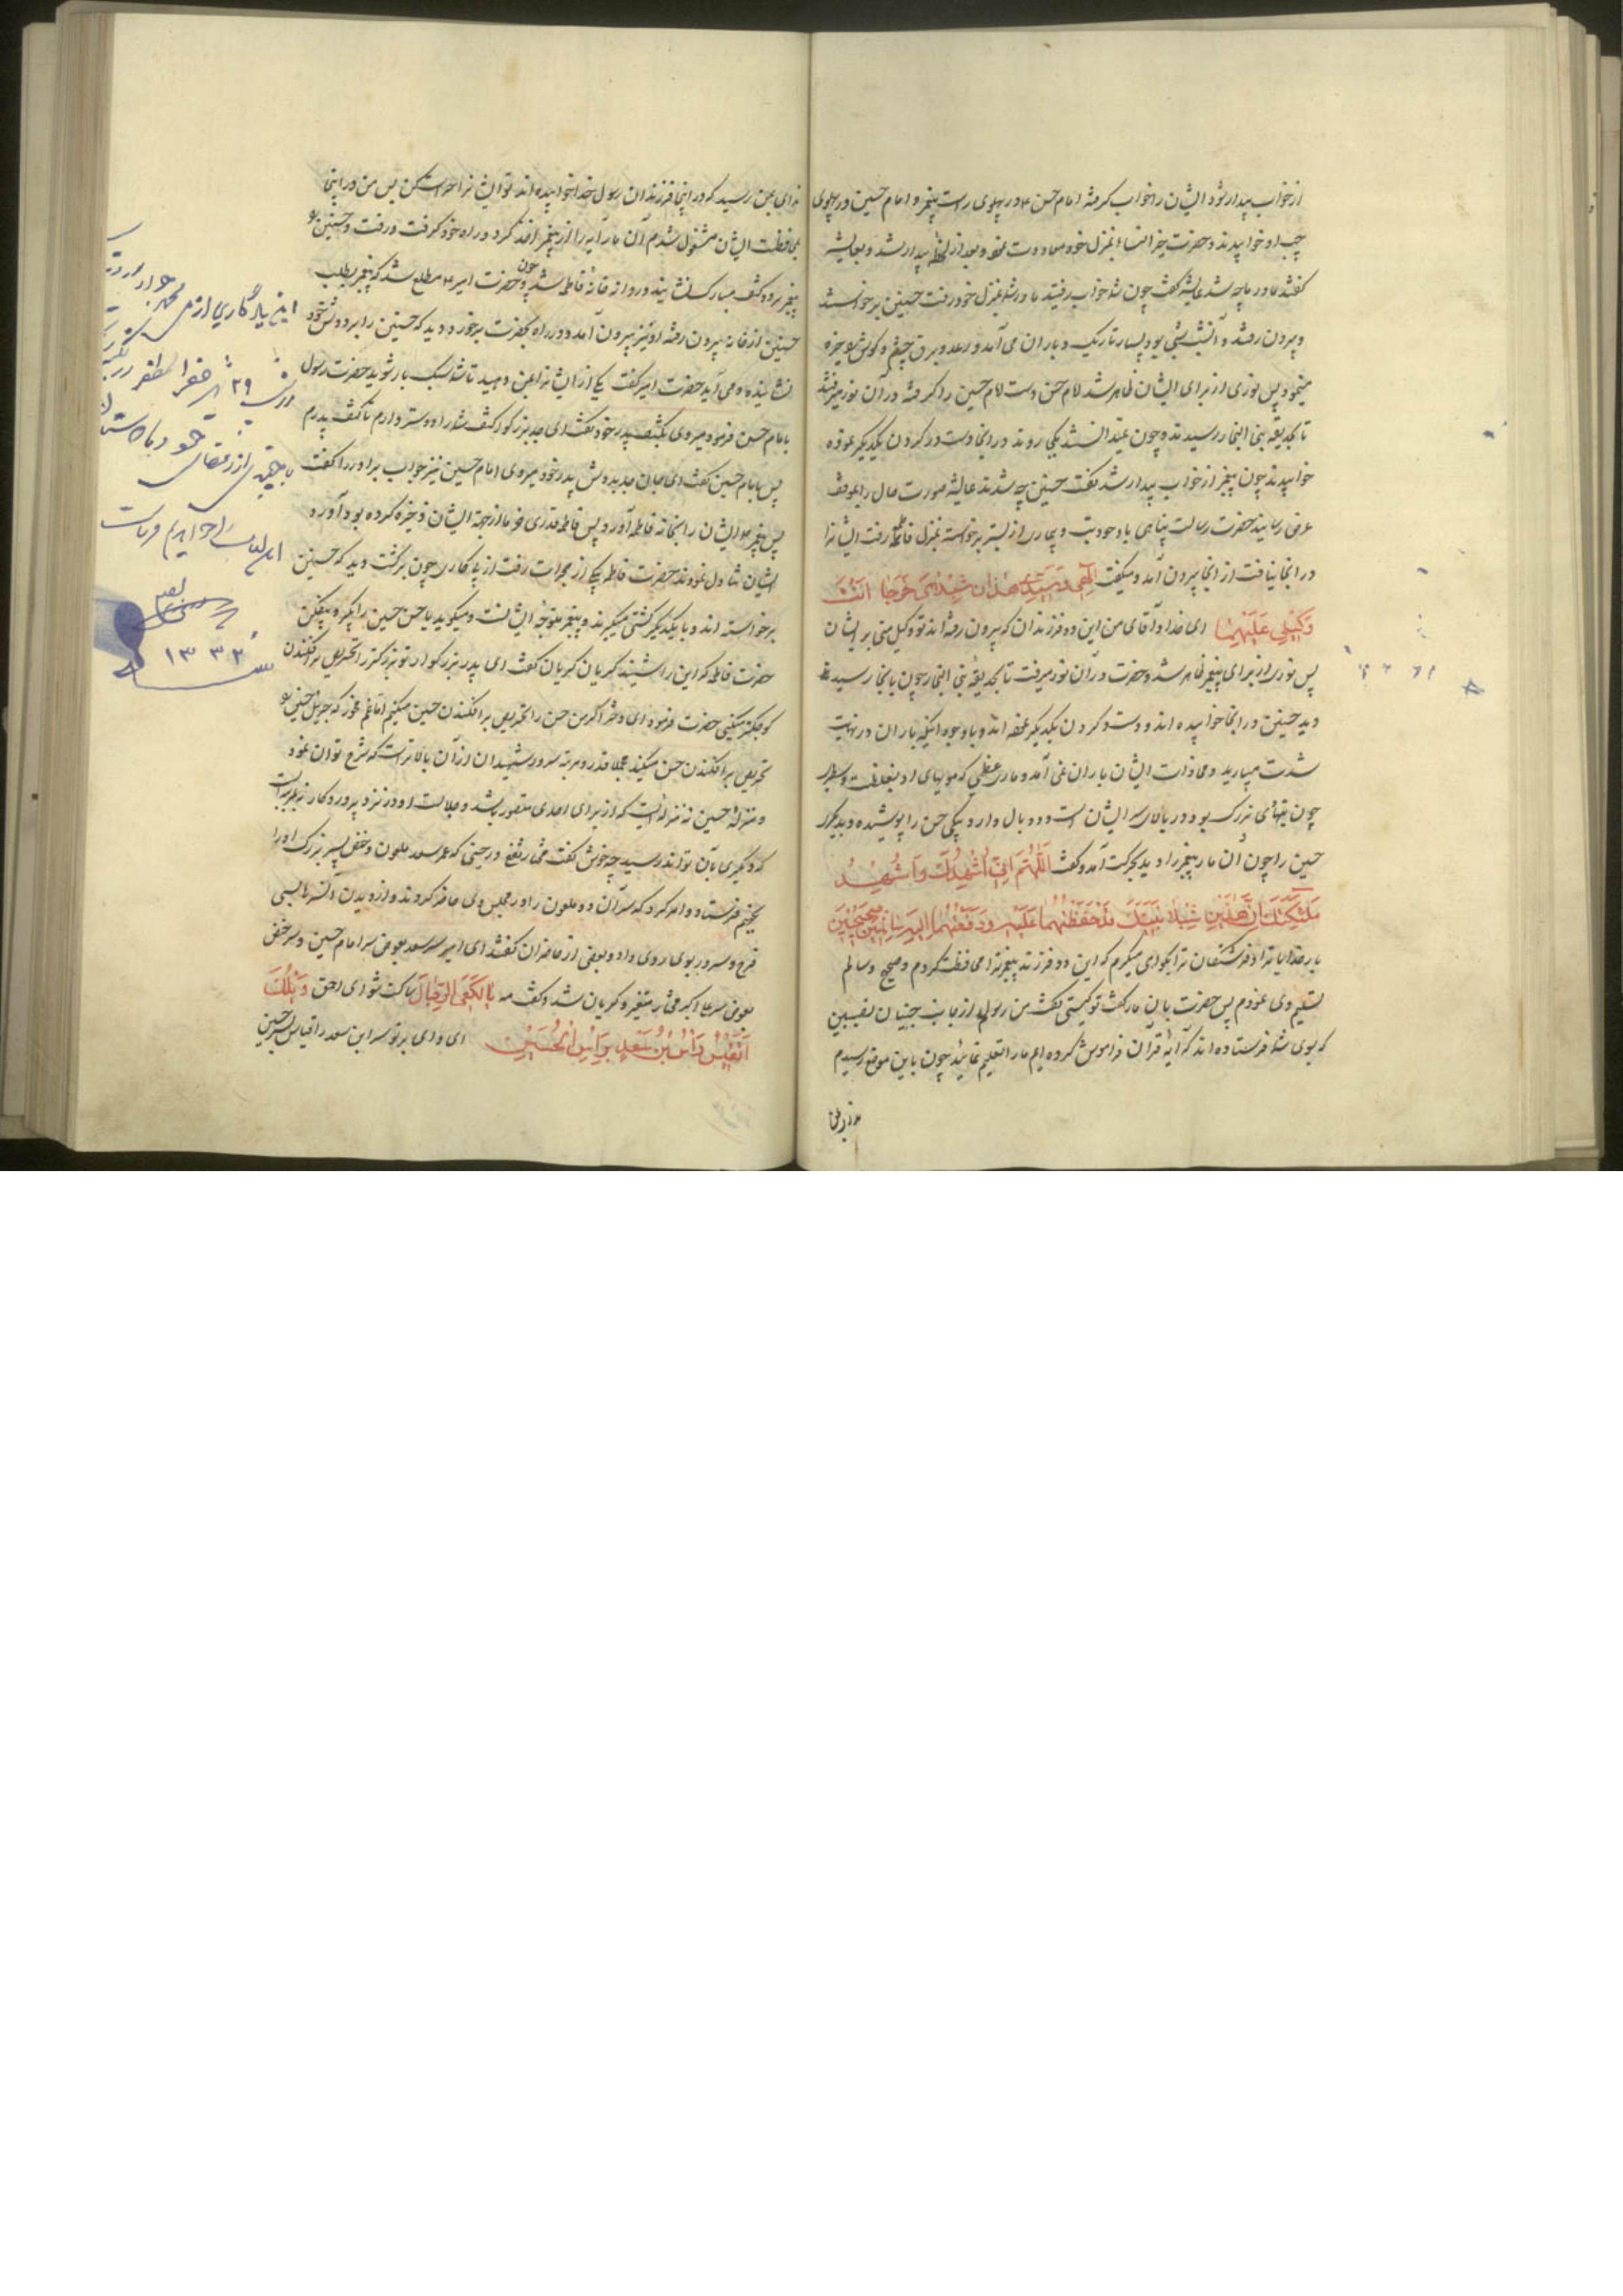 از خواب بیدار شود ایشان را خواب گرفته امام حسن ع در پهلوی راست پیغمبر و امام حسین در پهلوی
چپ او خوابیدند و حضرت خیر النساء بمنزل خود معاودت نمود و بعد از لحظهٔ بیدار شدند و بعایشه
گفتند مادر ما چه شد عایشه گفت چون شما خواب رفتید مادر شما بمنزل خود رفت حسنین برخواستند
و بیرون رفتند و آنشب شبی بود بسیار تاریک و باران می آمد و رعد و برق چشم و گوش را خیره
مینمود پس نوری از برای ایشان ظاهر شد امام حسن دست امام حسین را گرفته در آن نور میرفتند
تا بحدیقه بنی النجار رسیدند و چون نمیدانستند بکجا روند در آنجا دست در گردن یکدیگر نموده
خوابیدند چون پیغمبر از خواب بیدار شد گفت حسنین چه شدند عایشه صورت حال را بموقف
عرض رسانید حضرت رسالت پناهی با وجود تب و بیماری از بستر برخواسته بمنزل فاطمه رفت ایشانرا
در آنجا نیافت از آنجا بیرون آمد و میگفت الهی و سیدی هذان شبلای خرجا انت
وکیلی علیهما ای خدا و آقای من این دو فرزندان که بیرون رفته اند تو وکیل منی بر ایشان
پس نوری از برای پیغمبر ظاهر شد و حضرت در آن نور میرفت تا بحدیقه بنی النجار چون بآنجا رسید
دید حسنین در آنجا خوابیده اند و دست در گردن یکدیگر نموده اند و با وجود اینکه باران در نهایت
شدت میبارید و محاذات ایشان باران نمی آمد و مار عظیمی که مویهای او بغلظت و سطبری
چون نیهای بزرگ بود در بالای سر ایشان است و دو بال دارد بیکی حسن را پوشیده و بدیگری
حسین را چون آن مار پیغمبر را دید بحرکت آمد و گفت اللهم انی اشهدک و اشهد
ملائکتک ان هذین شبلا نبیک قد حفظتهما علیه و دفعتهما الیه سالمین صحیحین
بار خدایا ترا و فرشتگان ترا بگواهی میگیرم که این دو فرزند پیغمبر ترا محافظت کردم و صحیح و سالم
تسلیم وی نمودم پس حضرت بآن مار گفت تو کیستی گفت من رسولم از جانب جنیان نصیبین
که بسوی شما فرستاده اند که آیهٔ قرآن فراموش کرده ایم ما را تعلیم نمائید چون باین موضع رسیدم
ندای بمن رسید که در اینجا فرزندان رسول خدا خوابیده اند تو ایشانرا حراست کن پس من در اینجا
بمحافظت ایشان مشغول شدم آن مار آیه را از پیغمبر اخذ کرد و راه خود گرفت و رفت و حسنین را
پیغمبر بر دو کتف مبارک نشانید و روانه خانهٔ فاطمه شد و چون حضرت امیر ع مطلع شد که پیغمبر بطلب
حسنین از خانه بیرون رفته او نیز بیرون آمد و در راه بحضرت برخورد و دید که حسنین را بر دوش خود
نشانیده و می آید حضرت امیر گفت یکی از ایشانرا بمن دهید تا شما سبک بار شوید حضرت رسول
بامام حسن فرمود میروی بکتف پدر خود گفت ای جد بزرگوار کتف شما را دوستر دارم تا کتف پدرم
پس بامام حسین گفت ای جان جد بدوش پدر خود میروی امام حسین نیز جواب برادر را گفت
پس پیغمبر ع ایشان را بخانه فاطمه آورد پس فاطمه قدری خرما از جهة ایشان ذخیره کرده بود آورد
ایشان تناول نمودند حضرت فاطمه بیکی از حجرات رفت از پی کاری چون برگشت دید که حسنین
برخواسته اند و با یکدیگر کشتی میگیرند و پیغمبر متوجه ایشانست و میگوید یا حسن حسین را بگیر و بیفکن
حضرت فاطمه که این را شنید گریان گریان گفت ای پدر بزرگوار تو بزرگتر را تحریص بر افکندن
کوچکتر میکنی حضرت فرمود ای دختر اگر من حسن را تحریص بر افکندن حسین میکنم اما غم مخور که جبرئیل حسین را
تحریص بر افکندن حسن میکند مجملا قدر و مرتبه سرور شهیدان از آن بالاتر است که شرح توان نمود
و منزلهٔ حسین نه منزله ایست که از برای احدی متصور باشد و جلالت او در نزد پروردگار نه بمرتبه ایست
که دیگری بآن تواند رسید چه خوش گفت مختار ثقفی در حینی که عمر سعد ملعون و حفص پسر بزرگ او را
بجهنم فرستاد و امر کرد که سر آن دو ملعون را در مجلس وی حاضر کردند و از دیدن آن سرها بسی
فرح و سرور بوی روی داد و بعضی از حاضران گفتند ای امیر سر سعد بعوض سر امام حسین و سر حفص
بعوض سر علی اکبر مختار متغیر و گریان شد و گفت مه ساکت شو ای احمق ویلک
اتقیس راس بن سعد براس الحسین ای وای بر تو سر ابن سعد را قیاس بسر حسین
این یادگاری از
۲۹
۱۳۳۲